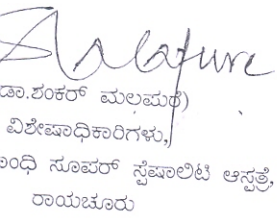 ಡಾ.ಶಂಕರ್ ಮಲಪುರೆ)
ವಿಶೇಷಾಧಿಕಾರಿಗಳು,
ಂಧಿ ಸೂಪರ್ ಸ್ಪೆಷಾಲಿಟಿ ಆಸ್ಪತ್ರೆ,
ರಾಯಚೂರು